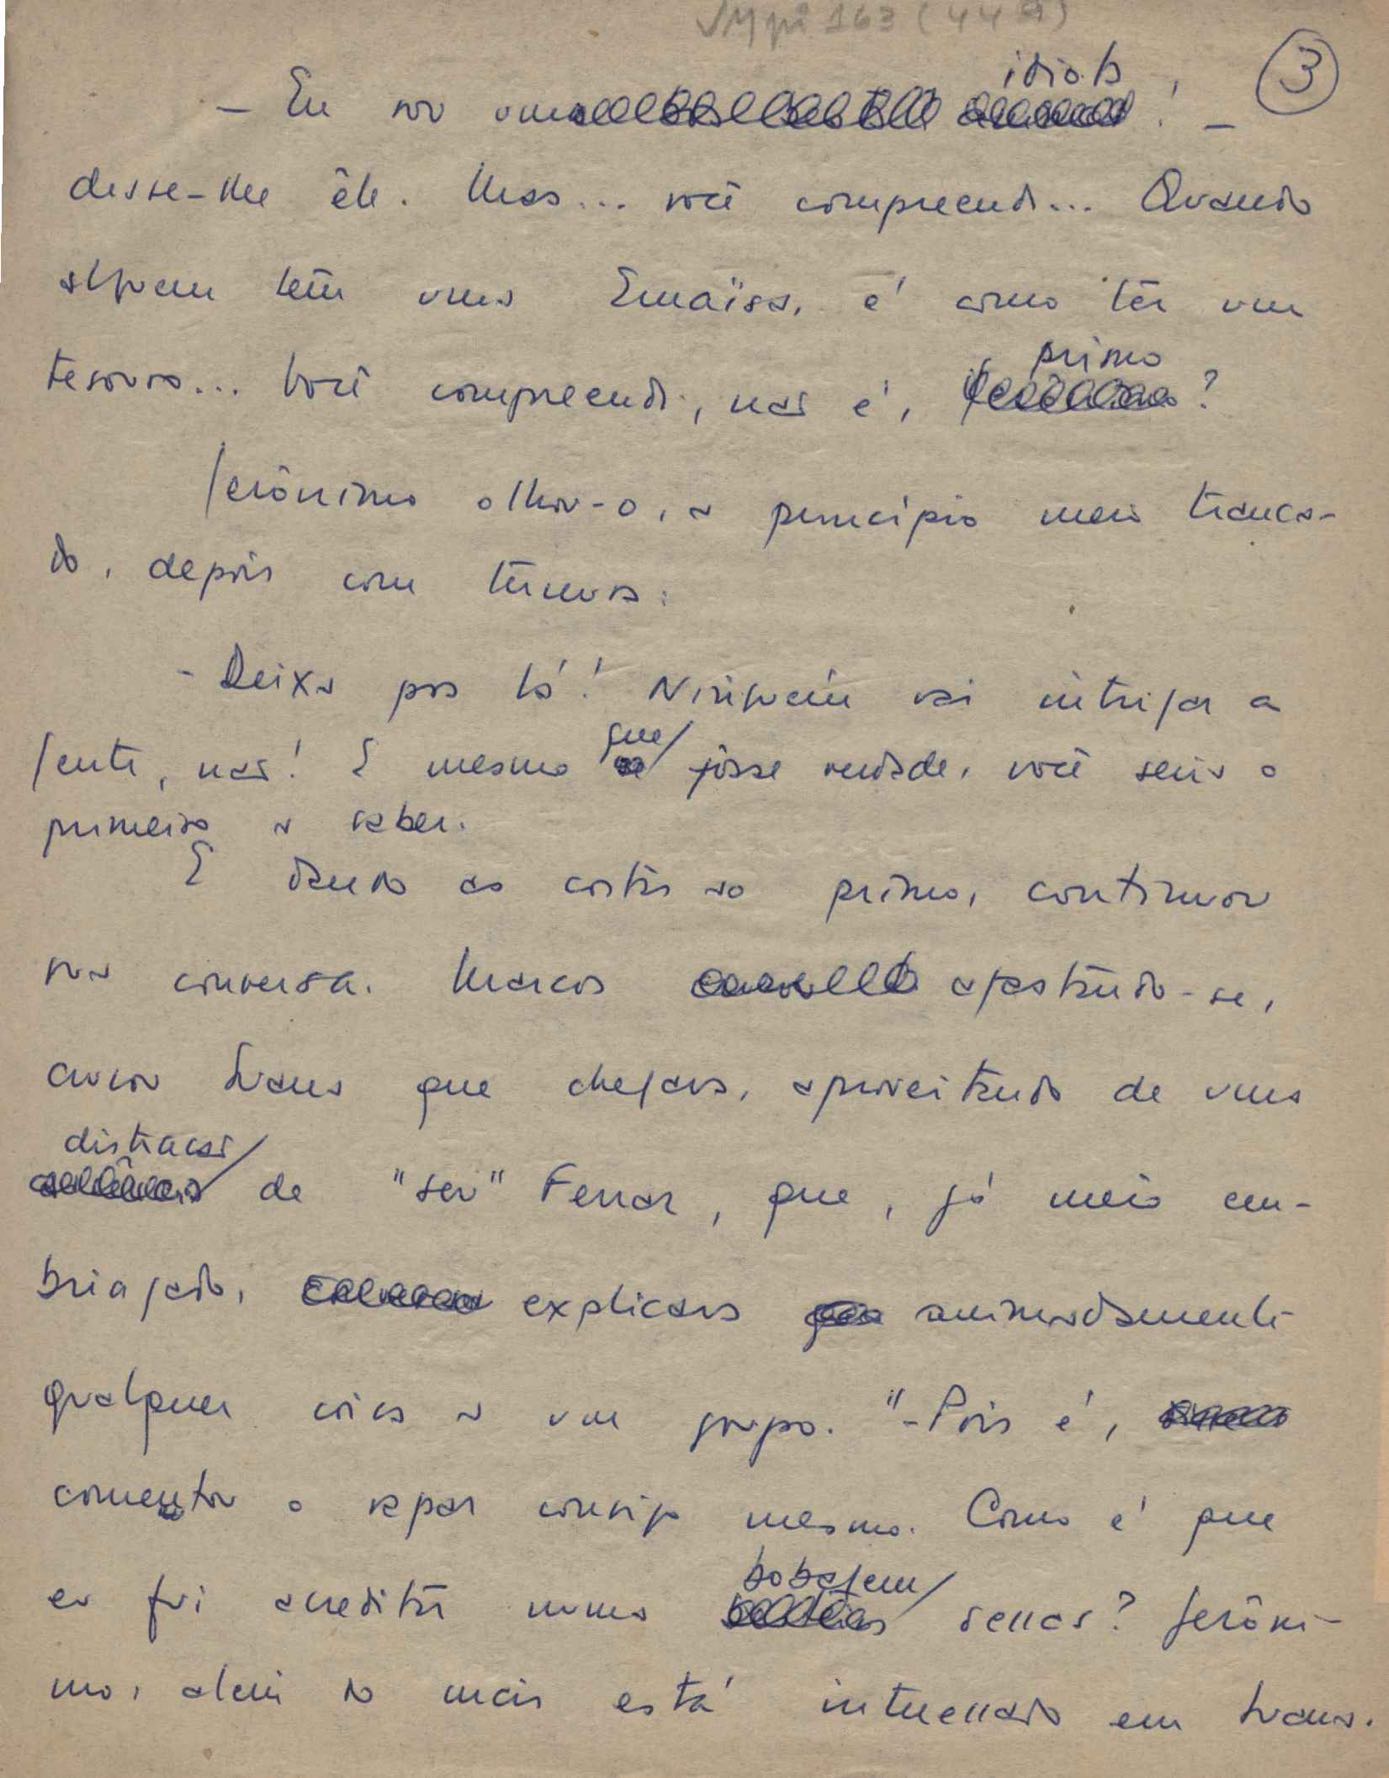 3
idiota
— Eu sou um !—
disse-lhe êle. Mas... você compreende... Quando
alguem tem uma Smaïsa, é como ter um
primo
tesouro... Você compreende, não é, ?
Jerônimo olhou-o, a principio meio tranca-
do, depois com ternura:
- Deixa pra lá! Ninguém vai intrigar a
que
gente, não! E mesmo fôsse verdade, você seria o
primeiro a saber.
E dando as costas ao primo, continuou
sua conversa. Marcos afastando-se,
cruzou Luana que chegava, aproveitando de uma
distracão
de "seu" Ferraz, que, já meio em-
briagado, explicava animadamente
qualquer coisa a um grupo. "-Pois é,
comentou o rapaz consigo mesmo. Como é que
bobagem
eu fui acreditar numa dessas? Jerôni-
mo, alem do mais está interessado em Luana.